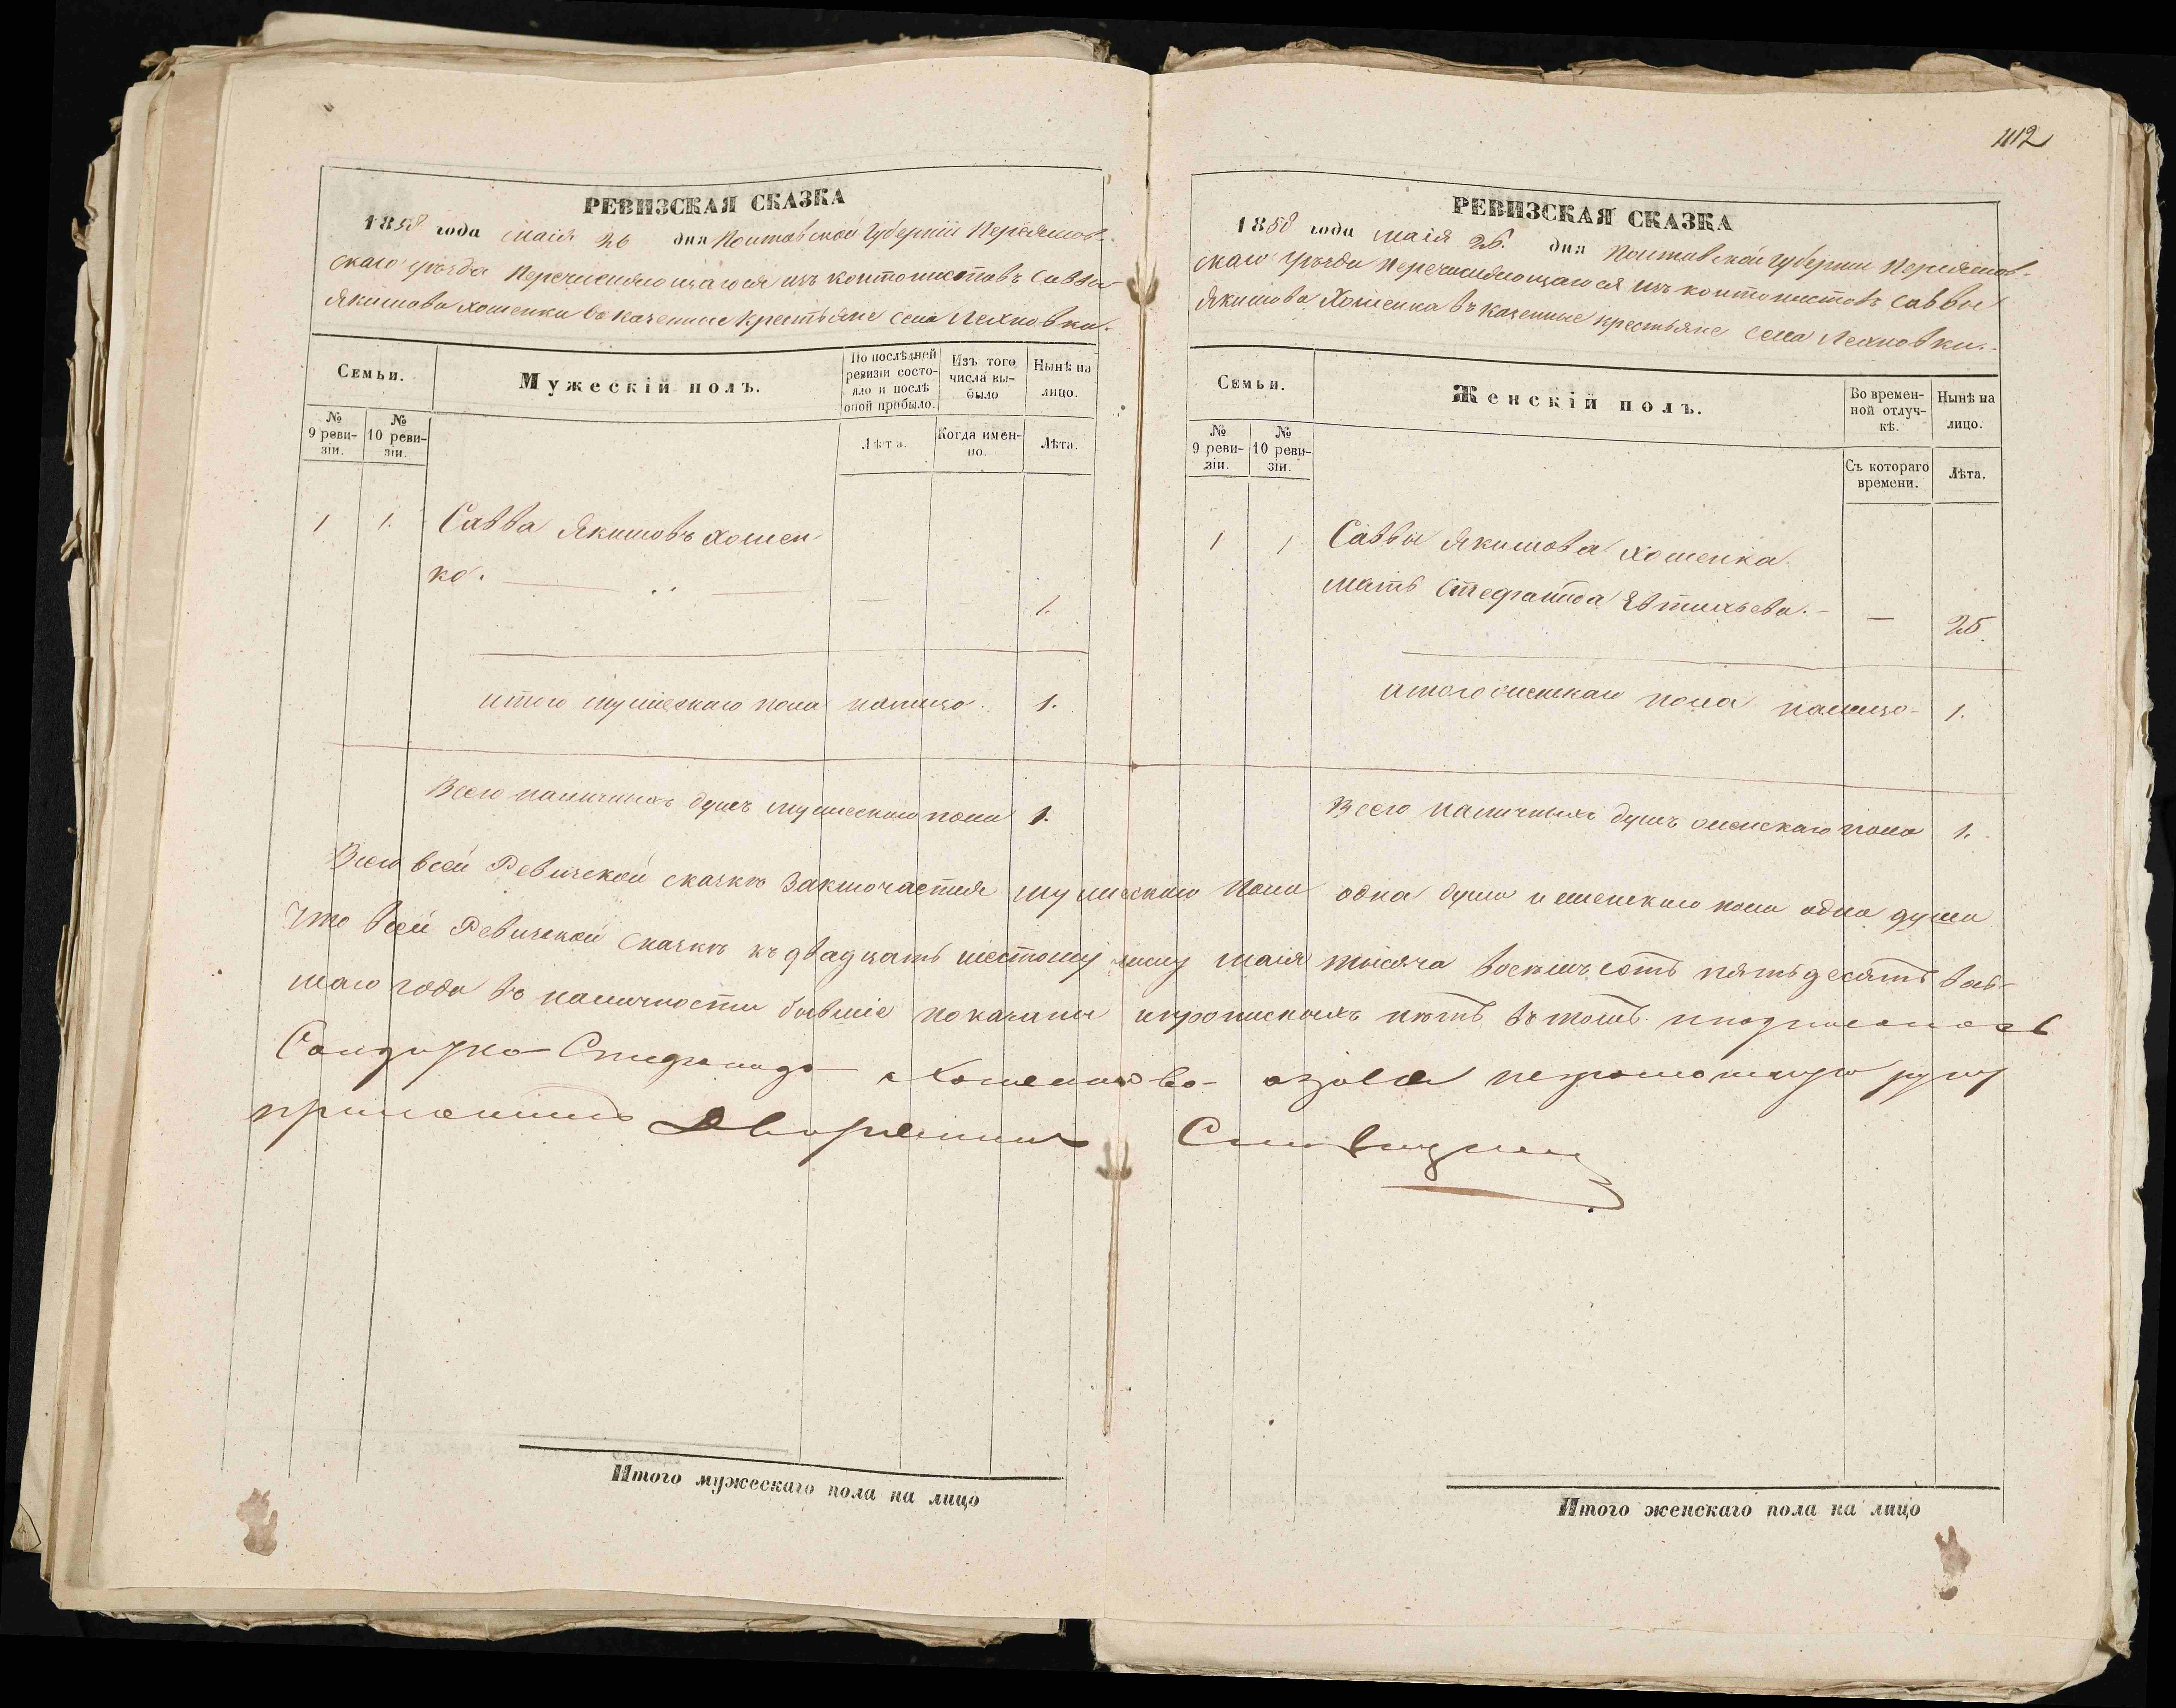 112
РЕВИЗСКАЯ СКАЗКА
1858 года маія 26 дня Полтавской Губерніи Переяслов-
скаго уѣзда Перечисляющагося изъ контонистовъ Саввы
Якимова Хоменка въ казенные крестьяне села Лехновки.
Семьи.
Мужескій полъ.
По послѣдней ревизіи состояло и послѣ оной прибыло.
Изъ того числа выбыло
Нынѣ на лицо.
№ 9 ревизіи.
№ 10 ревизіи.
Лѣта.
Когда именно.
Лѣта.
1 1. Савва Якимовъ Хомен-
ко. — 1.
итого мужескаго пола налицо. 1.
Всего наличныхъ душъ мужескаго пола 1.
РЕВИЗСКАЯ СКАЗКА
1858 года маія 26. дня Полтавской губерніи Переяслов-
скаго уѣзда Перечисляющагося изъ контонистовъ Саввы
Якимова Хоменка въ казенные крестьяне села Лехновки.
Семьи.
Женскій полъ.
Во временной отлучкѣ.
Нынѣ на лицо.
№ 9 ревизіи.
№ 10 ревизіи.
Съ котораго времени.
Лѣта.
1 1 Саввы Якимова Хоменка
мать Стефанида Евтихьева. — 25.
итого женскаго пола налицо 1.
Всего наличныхъ душъ женскаго пола 1.
Всего всей Ревизской сказкѣ заключается мужескаго пола одна душа и женскаго пола одна душа
Что всей Ревизской сказкѣ къ двадцать шестому числу маія тысяча восемь сотъ пятьдесятъ вось-
маго года въ наличности бывшіе показаны и прописныхъ нѣтъ въ томъ подписалась
Стефанида Хоменкова а за нея неграмотную руку
приложилъ Дворянинъ
Итого мужескаго пола на лицо
Итого женскаго пола на лицо